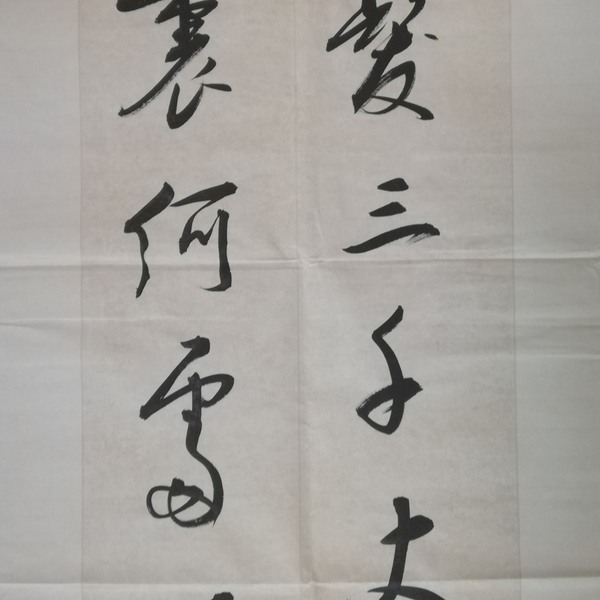 髮三千丈
裏何處